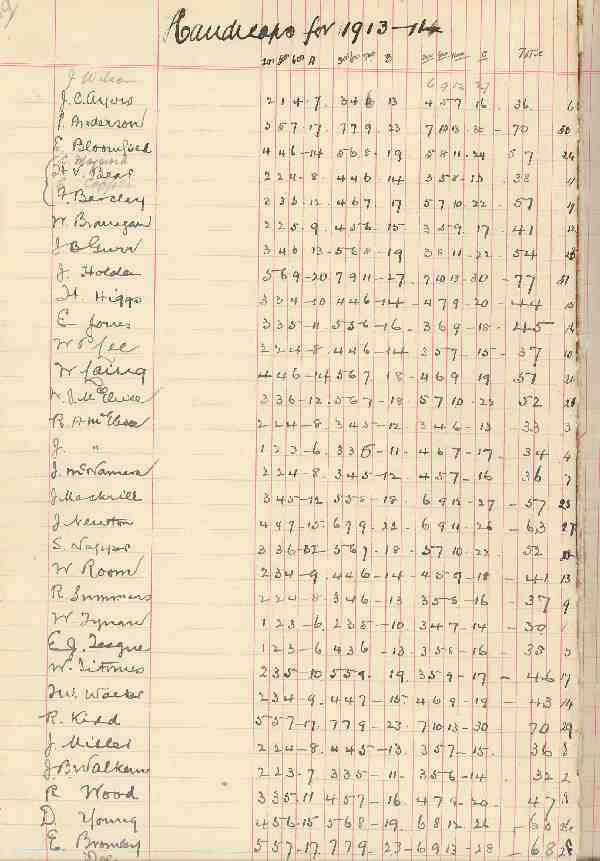 Handicaps for 1913-14
200 400 600 A 300 500 700 B C Total
J Wilson 6 9 12 27
J. C. Ayers 2 1 4 - 7 . 3 4 6 13 4 5 7 16 . 36
P. Anderson 5 5 7 . 17 . 7 7 9 . 23 7 10 13 . 30 - 70 30
E. Bloomfield 4 4 6 - 14 5 6 8 - 19 5 8 11 - 24 57 24
H. V. Bear 2 2 4 - 8 . 4 4 6 14 3 5 8 - 38
F. Barclay 3 3 6 12 . 4 6 7 . 17 5 7 10 . 22 - 51
W. Branigan 2 2 5 . 9 . 4 5 6 . 15 - 3 5 9 . 17 . 41
J B Gurr 3 4 6 13 - 5 6 8 - 19 3 8 11 - 22 . 54
J. Holden 5 6 9 - 20 7 9 11 - 27 . 7 10 13 - 30 - 77 31
H. Higgs 3 3 4 - 10 4 4 6 - 14 - 4 7 9 - 20 - 44
E Jones 3 3 5 - 11 . 5 5 6 - 16 . 3 6 9 - 18 - 45
W P Lee 2 2 4 - 8 . 4 4 6 - 14 3 5 7 - 15 - 37 10
W Laing 4 4 6 - 14 5 6 7 18 - 4 6 9 19 . 51
W. J. McElwee 3 3 6 - 12 . 5 6 7 - 18 5 7 10 - 22 52
R. A McElwee 2 2 4 - 8 . 3 4 5 - 12 3 4 6 - 13 - 33 3
J. " 1 2 3 - 6 . 3 3 5 - 11 - 4 6 7 - 17 . 34 4
J. McNamara 2 2 4 - 8 . 3 4 5 . 12 - 4 5 7 - 16 36 7
J Mackrill 3 4 5 - 12 5 5 8 - 18 . 6 9 12 - 27 - 57 25
J Newton 4 4 7 - 15 - 6 7 9 . 22 - 6 9 11 - 26 - 63 27
S. Napper 3 3 6 - 12 - 5 6 7 . 18 - 5 7 10 - 22 . 52
W Room 2 3 4 - 9 . 4 4 6 - 14 - 4 5 9 - 18 - 41 13
R. Summers 2 2 4 - 8 3 4 6 - 13 3 5 8 - 16 - 37 9
W Tynan 1 2 3 - 6 . 2 3 5 - 10 . 3 4 7 - 14 - 30 1
E. J. Teague 1 2 3 - 6 4 3 6 - 13 - 3 5 8 - 16 - 35 5
W. Titmus 2 3 5 - 10 5 5 9 . 19 . 3 5 9 - 17 - 46 17
W. Walker 2 3 4 - 9 . 4 4 7 - 15 - 4 6 9 - 19 - 43 14
R. Kidd 5 5 7 - 17 . 7 7 9 - 23 . 7 10 13 - 30 - 70 29
J. Miller 2 2 4 - 8 . 4 4 5 - 13 . 3 5 7 - 15 . 36 8
J B Walkem 2 2 3 . 7 3 3 5 - 11 . 3 5 6 - 14 32 2
R Wood 3 3 5 . 11 4 5 7 - 16 . 4 7 9 - 20 . 47
D. Young 4 5 6 - 15 5 6 8 - 19 - 6 8 12 - 26 - 60
E. Bromley 5 5 7 - 17 . 7 7 9 . 23 - 6 9 13 - 28 - 68 28